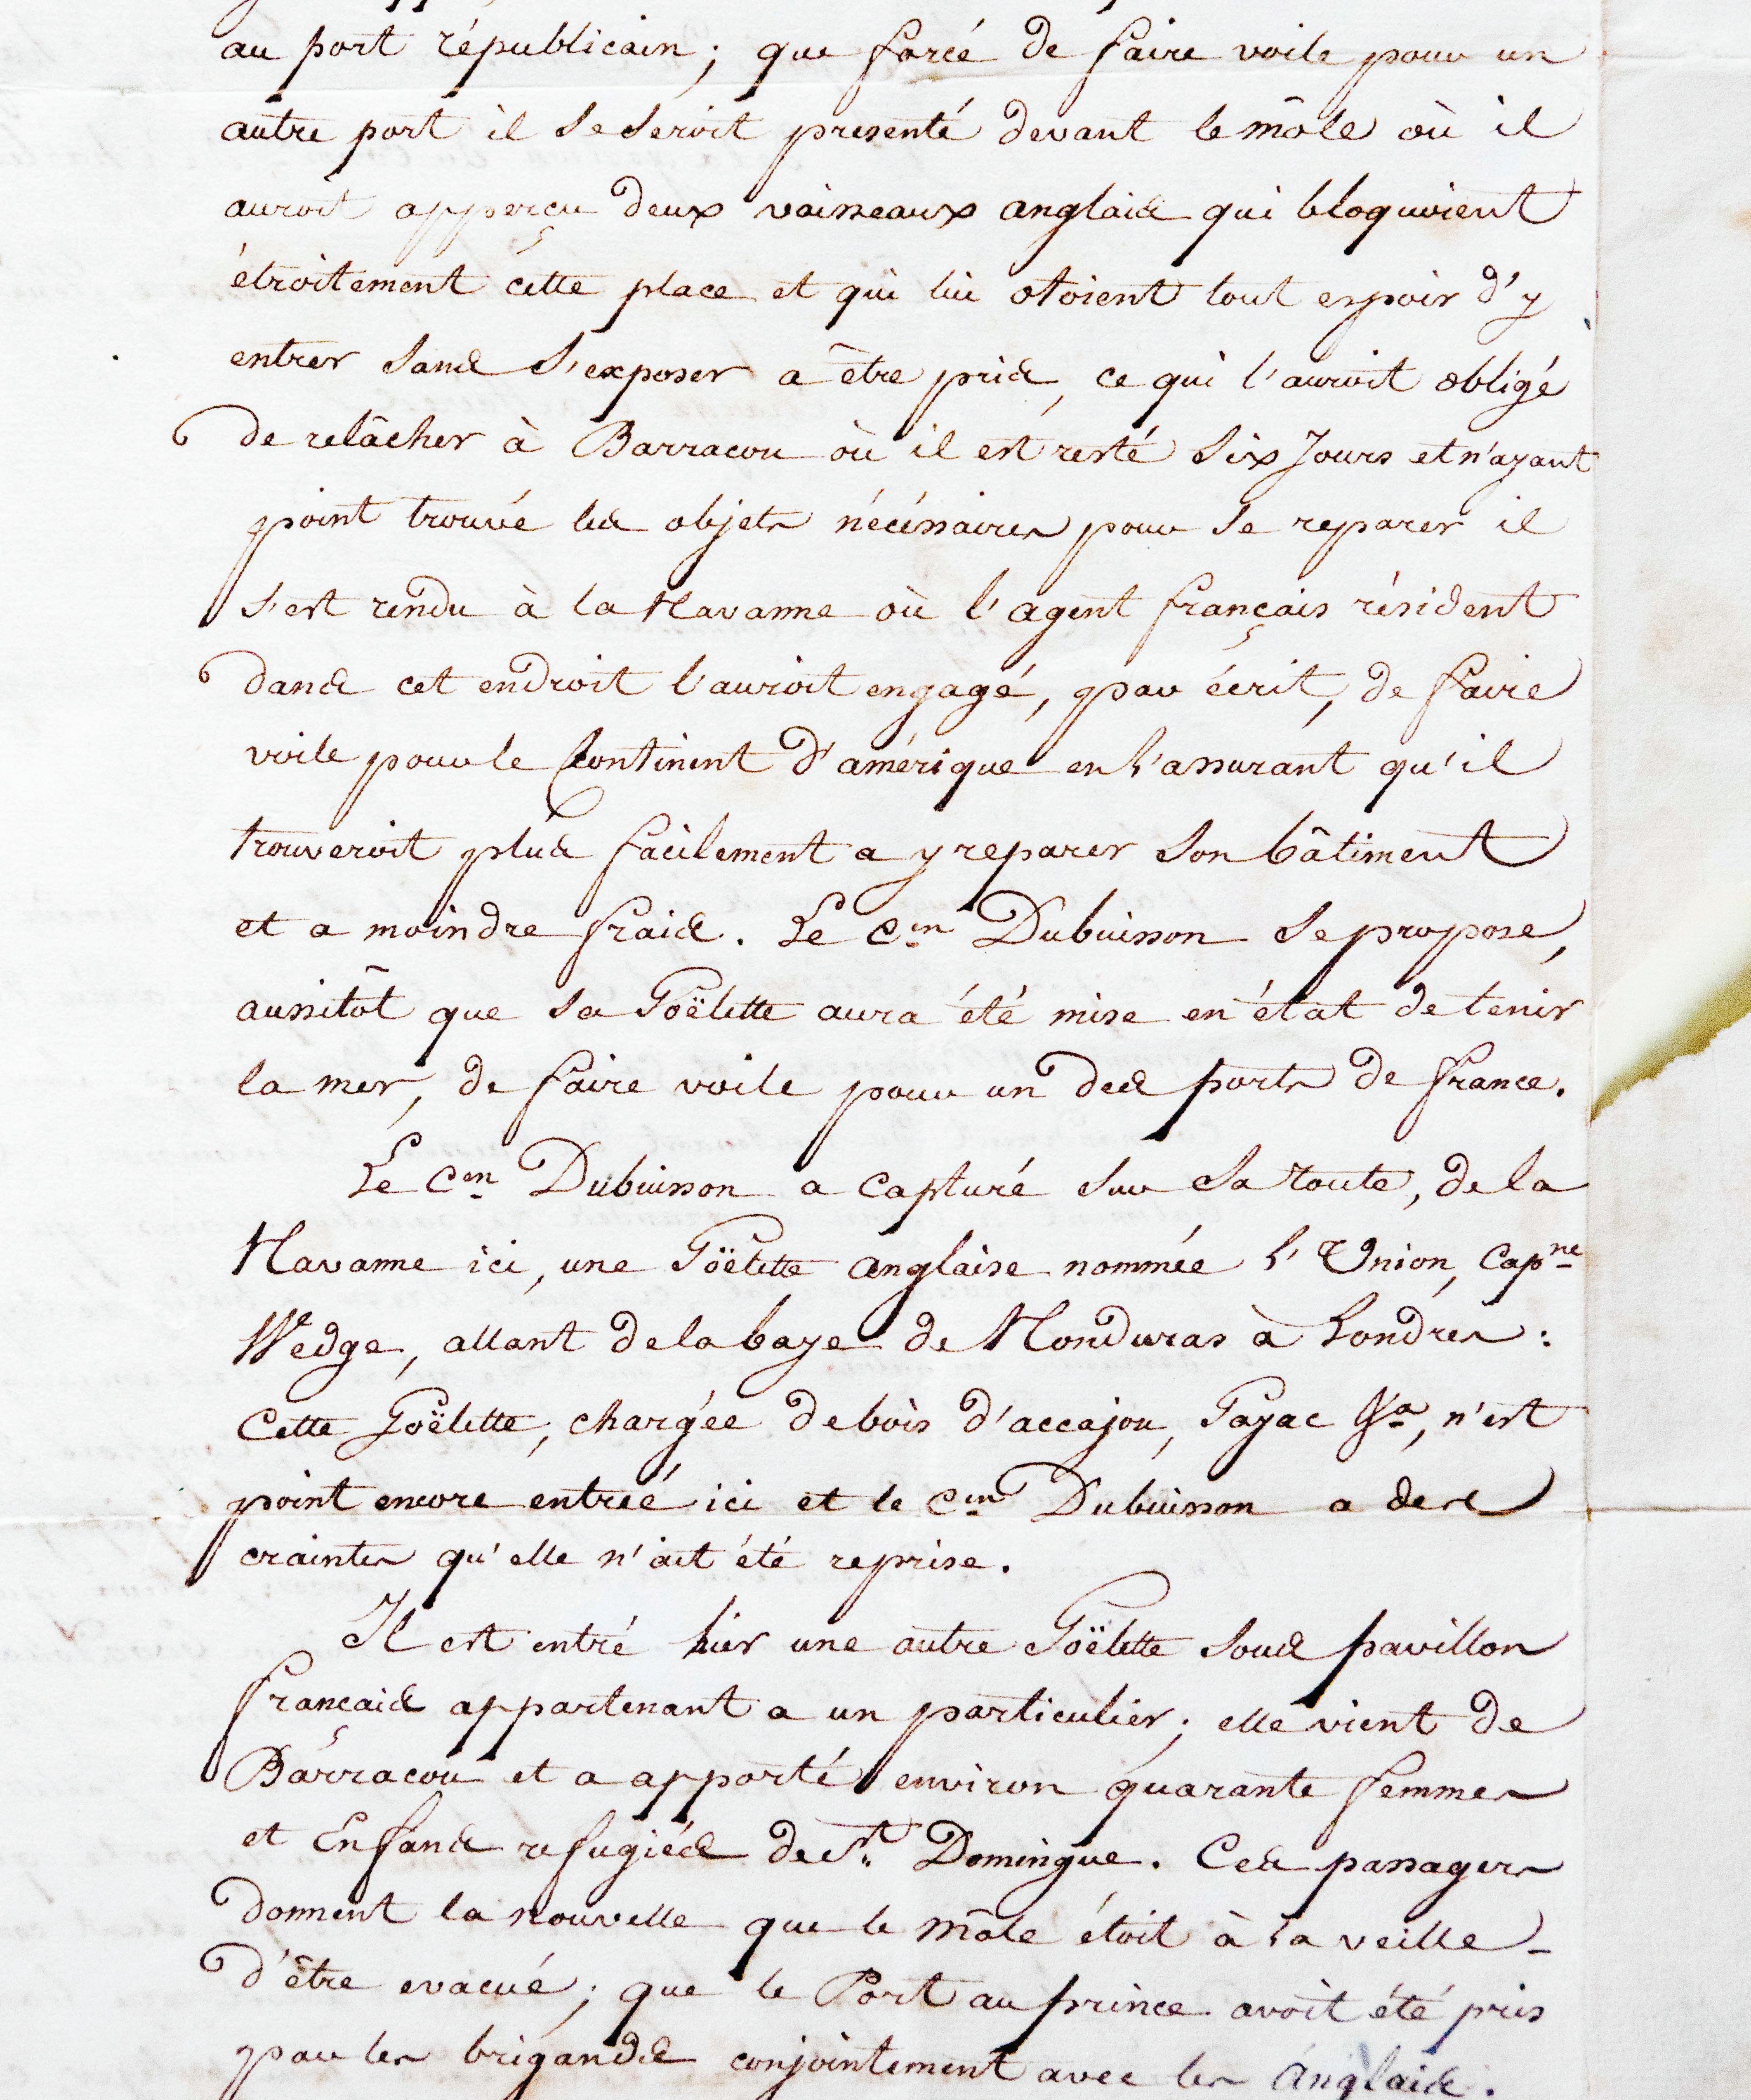 au port républicain; que forcé de faire voile pour un
autre port il se seroit presenté devant le môle où il
auroit apperçu deux vaisseaux anglais qui bloquoient
étroitement cette place et qui lui otoient tout espoir d'y
entrer sans s'exposer a être pris, ce qui l'auroit obligé
de relâcher à Barracou où il est resté six Jours et n'ayant
point trouvé les objets nécéssaires pour se reparer il
s'est rendu à la Havanne où l'agent français résident
dans cet endroit l'auroit engagé, par écrit, de faire
voile pour le Continent d'amérique en l'assurant qu'il
trouveroit plus facilement a y reparer son bâtiment
et a moindre frais. Le Cen Dubuisson se propose,
aussitôt que sa Goëlette aura été mise en état de tenir
la mer, de faire voile pour un des ports de france.
Le Cen Dubuisson a capturé sur sa route, de la
Havanne ici, une Goëlette anglaise nommée l'Union, Capne
Wedge, allant de la baye de Honduras à Londres:
Cette Goëlette, chargée de bois d'accajou, Gayac &a, n'est
point encore entrée ici et le Cen Dubuisson a des
craintes qu'elle n'ait été reprise.
Il est entré hier une autre Goëlette sous pavillon
français appartenant a un particulier; elle vient de
Barracou et a apporté environ quarante femmes
et Enfans refugiés de St. Domingue. Ces passagers
donnent la nouvelle que le Môle étoit à la veille
d'être evacué; que le Port au prince avoit été pris
par les brigands conjointement avec les Anglais.